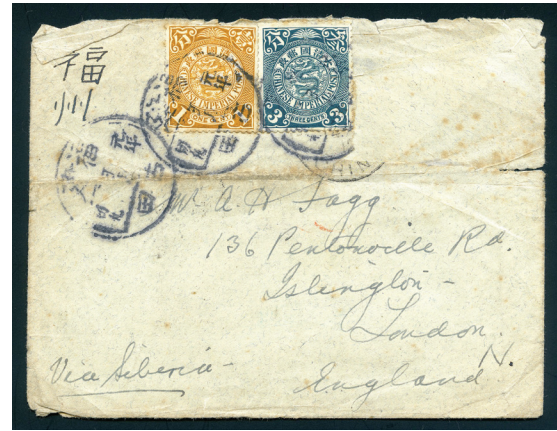 福州
CHINESE IMPERIAL POST
1 ONE CENT
CHINESE IMPERIAL POST
3 THREE CENTS 3
元年
福
Mr A. H Fagg
136 Pentonville Rd.
Islington -
London.
N.
England
Via Siberia -